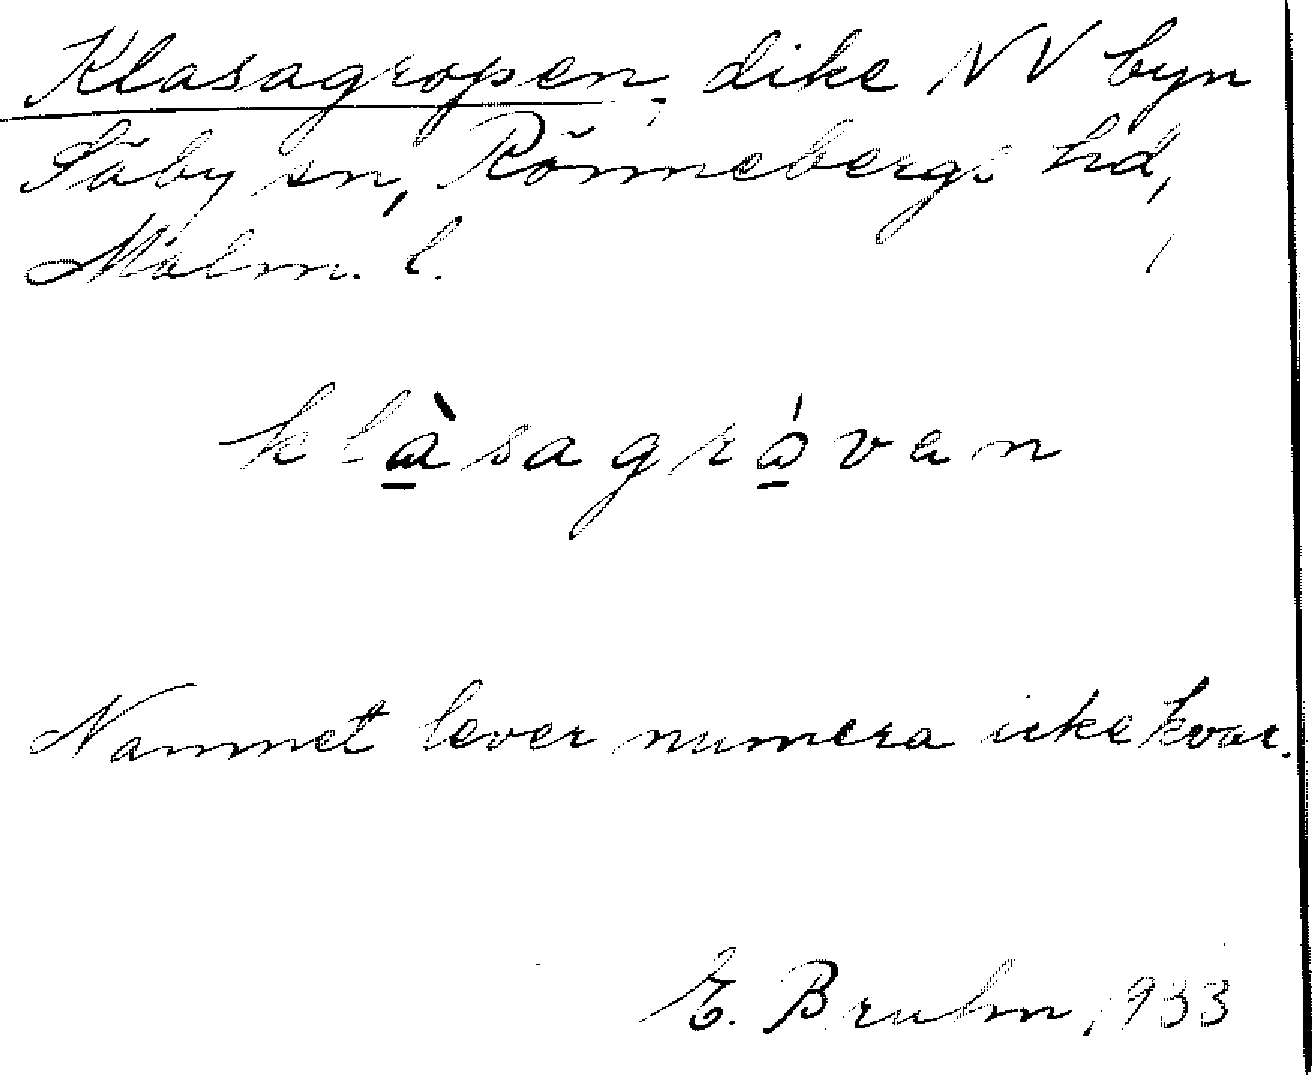 Klasagropen, dike NV byn
Säby sn, Rönnebergs hd,
Malm. l.
klàsagróven
Namnet lever numera icke kvar.
E. Bruhn, 1933